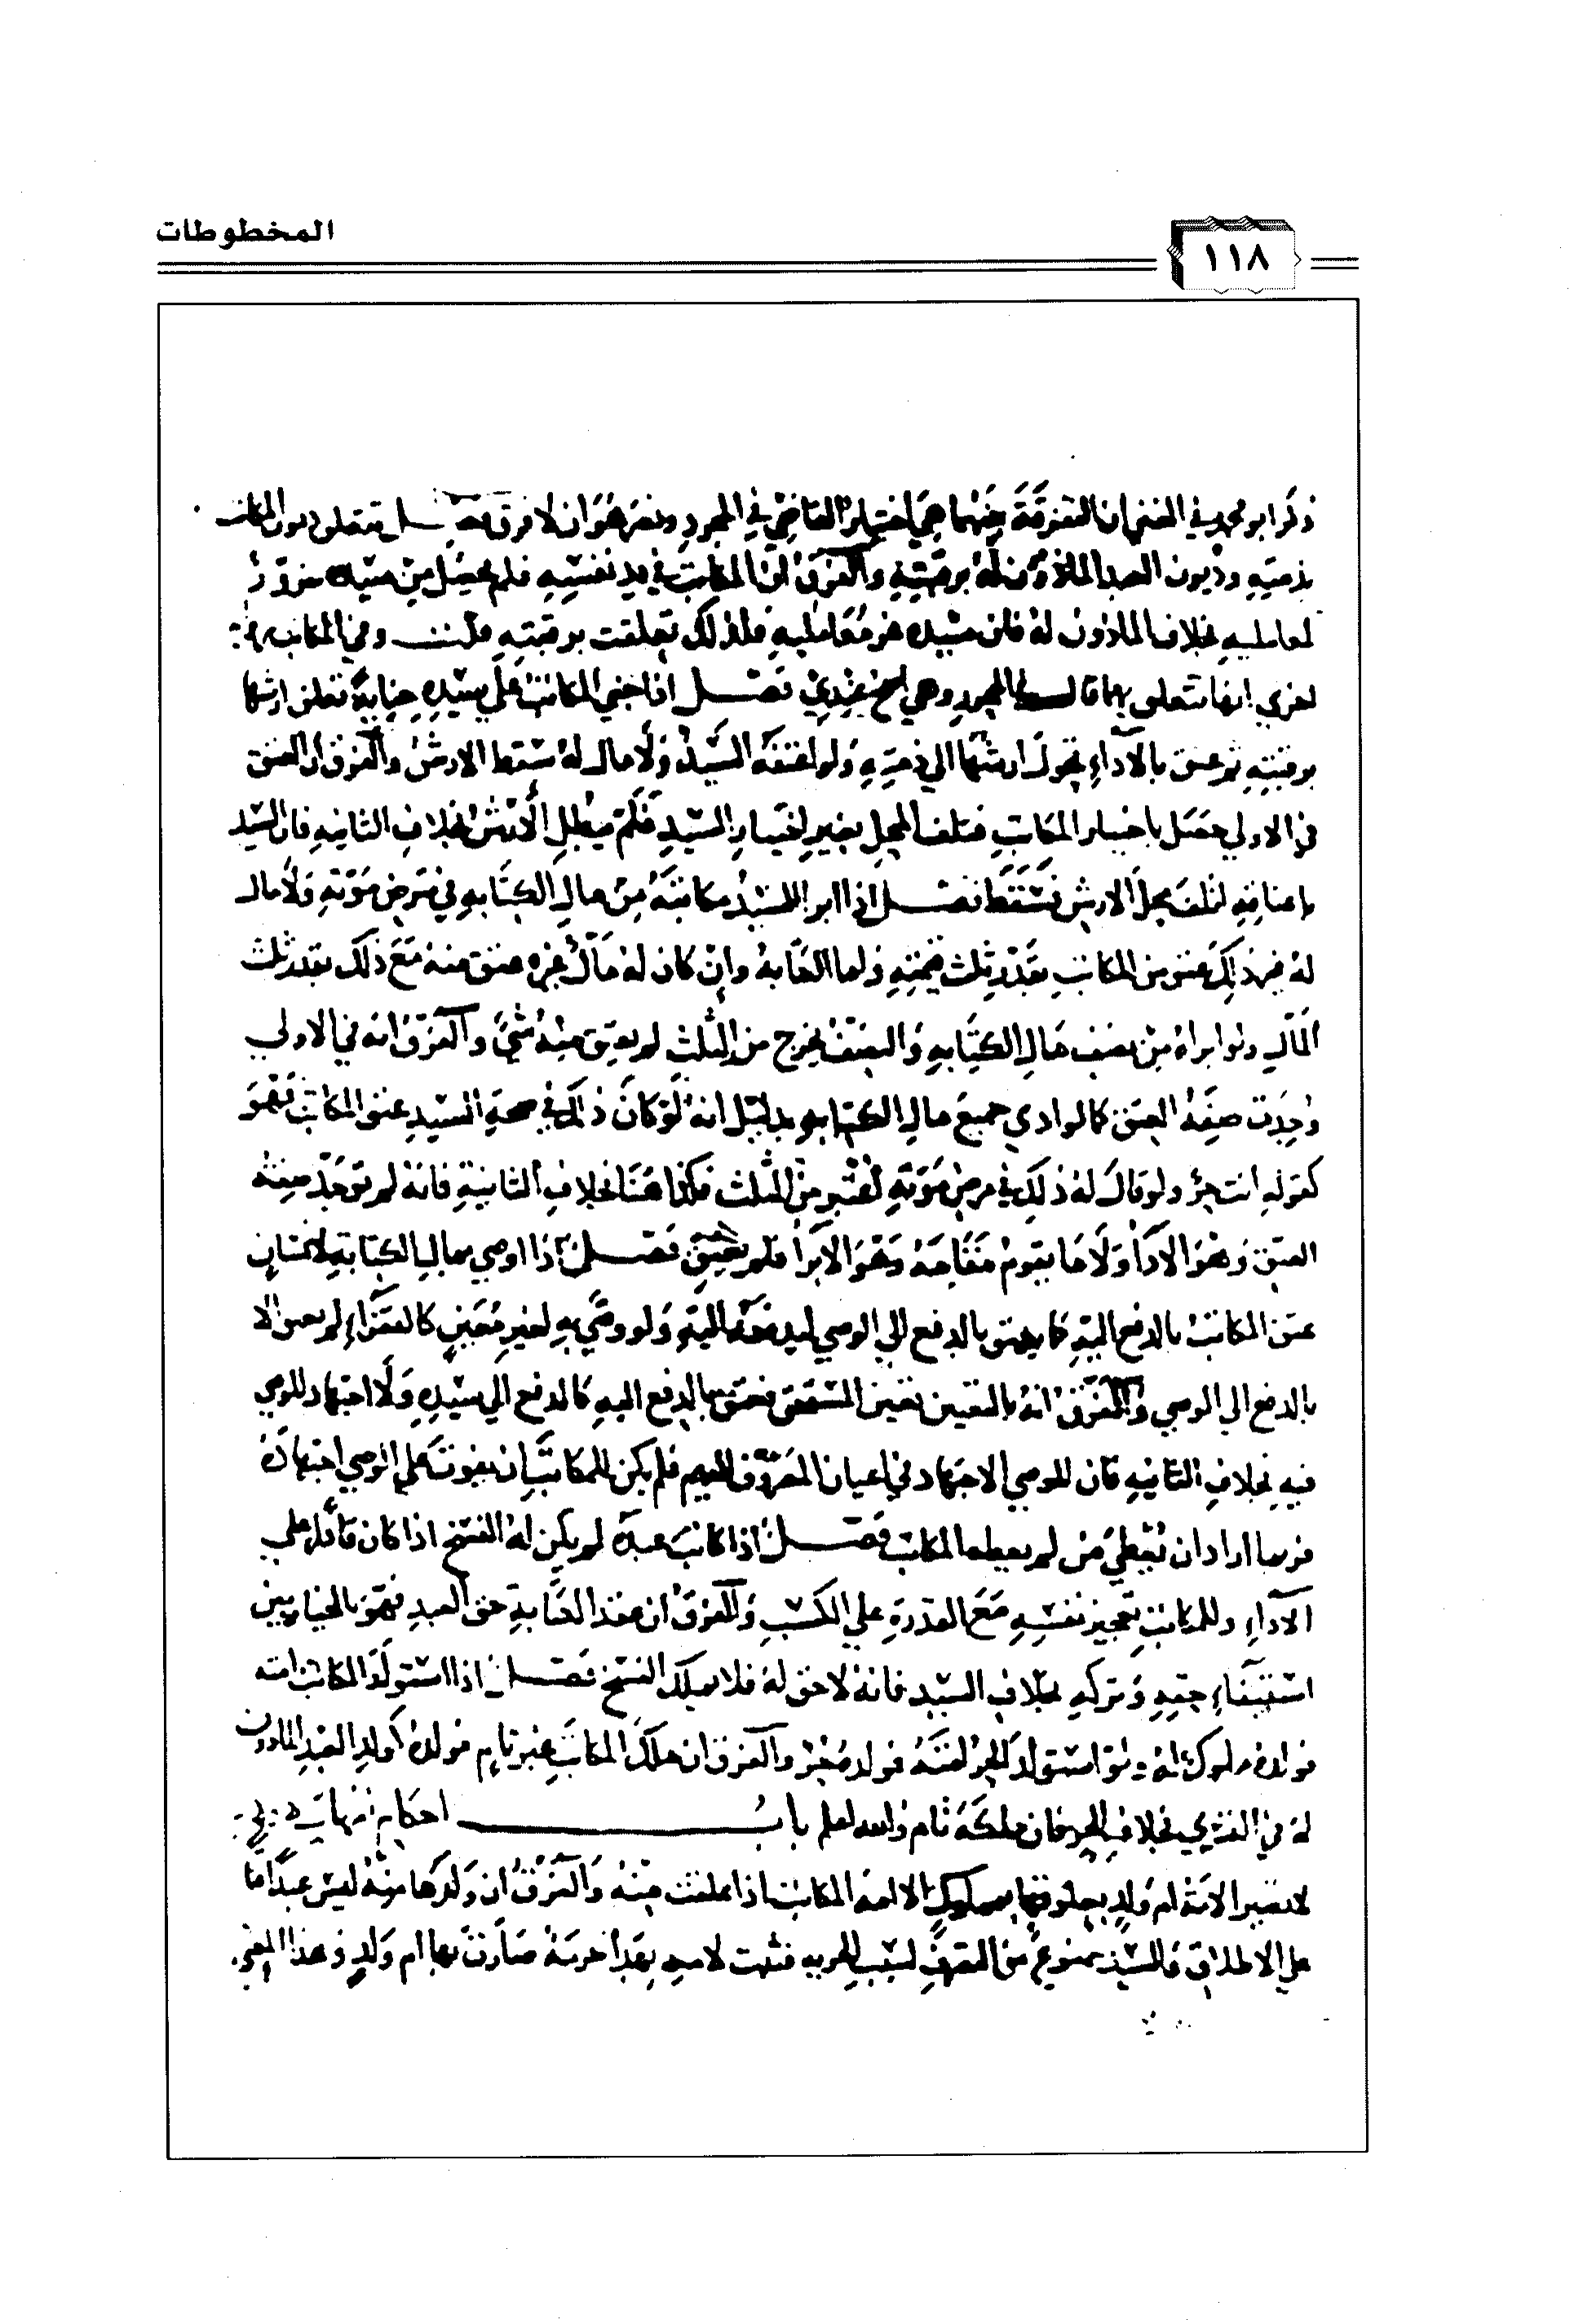 المخطوطات
١١٨
ذكر ابو محمد في المغني ان التفرقة بينهما هي اختيار القاضي في المجرد ونصر هو ان لا فرق فصل تتعلق ديون المكاتب
بذمته وديون العبد المأذون له برقبته والفرق ان المكاتب في يد نفسه فلم يحصل من سيده غرور
لمعامليه بخلاف المأذون له فان سيده غر معامليه فلذلك تعلقت برقبته قلت وفي المكاتب
اخري انها تتعلق بهما قاله في المجرد وهي اصح عندي فصل اذا جني المكاتب علي سيده جناية تعلق ارشها
برقبته ثم عتق بالآداء تحول ارشها الي ذمته ولو اعتقه السيد ولا مال له سقط الارش والفرق ان العتق
في الاولي حصل باختيار المكاتب فتلف المحل بغير اختيار السيد فلم يبطل الارش بخلاف الثانيه فان السيد
باعتاقه اتلف محل الارش فسقط فصل اذا ابرا السيد مكاتبه من مال الكتابه في مرض موته ولا مال
له غير ذلك عتق من المكاتب بقدر ثلث قيمته وله مال الكتابه وان كان له مال غيره عتق منه مع ذلك بقدر ثلث
المال ولو ابراه من نصف مال الكتابه والنصف يخرج من الثلث لم يعتق منه شي والفرق انه في الاولي
وجدت صفة العتق كما لو ادي جميع مال الكتابه بدليل انه لو كان ذلك في صحة السيد عتق المكاتب فهو
كقوله انت حر ولو قال له ذلك في مرض موته اعتبر من الثلث فكذا هنا بخلاف الثانية فانه لم توجد صفة
العتق وهو الادا ولا ما يقوم مقامه وهو الابرا فلم يعتق فصل اذا اوصي بمال الكتابة لانسان
عتق المكاتب بالدفع اليه كما يعتق بالدفع الي الوصي ليدفعه اليه ولو وصي به لغير معين كالفقراء لم يعتق الا
بالدفع الي الوصي والفرق انه بالتعيين تعين المستحق فعتق بالدفع اليه كالدفع الي سيده ولا اجتهاد للوصي
فيه بخلاف الثانيه فان للوصي الاجتهاد في اعيان المصروف اليهم فلم يكن للمكاتب ان يفوت علي الوصي اجتهاده
فربما اراد ان يعطي من لم يعطه المكاتب فصل اذا كاتب عبده لم يكن له الفسخ اذا كان قادرا علي
الآداء وللمكاتب تعجيز نفسه مع القدرة علي الكسب والفرق ان عقد الكتابة حق العبد فهو بالخيار بين
استيفاء حقه وتركه بخلاف السيد فانه لا حق له فلا يملك الفسخ فصل اذا استولد المكاتب امته
فولده مملوك له ولو استولد الحر امته فولده حر والفرق ان ملك المكاتب غير تام فولده كولد العبد المأذون
له في التسري بخلاف الحر فان ملكه تام والله اعلم باب احكام امهات
لا تصير الامة ام ولد بعلوقها بمملوك الا امة المكاتب اذا علقت منه والفرق ان ولدها منه ليس عبدا قنا
علي الاطلاق فالسيد ممنوع من التصرف لسبب الحريه فثبت لامه بهذا حرمة صارت بها ام ولد وهذا المعني